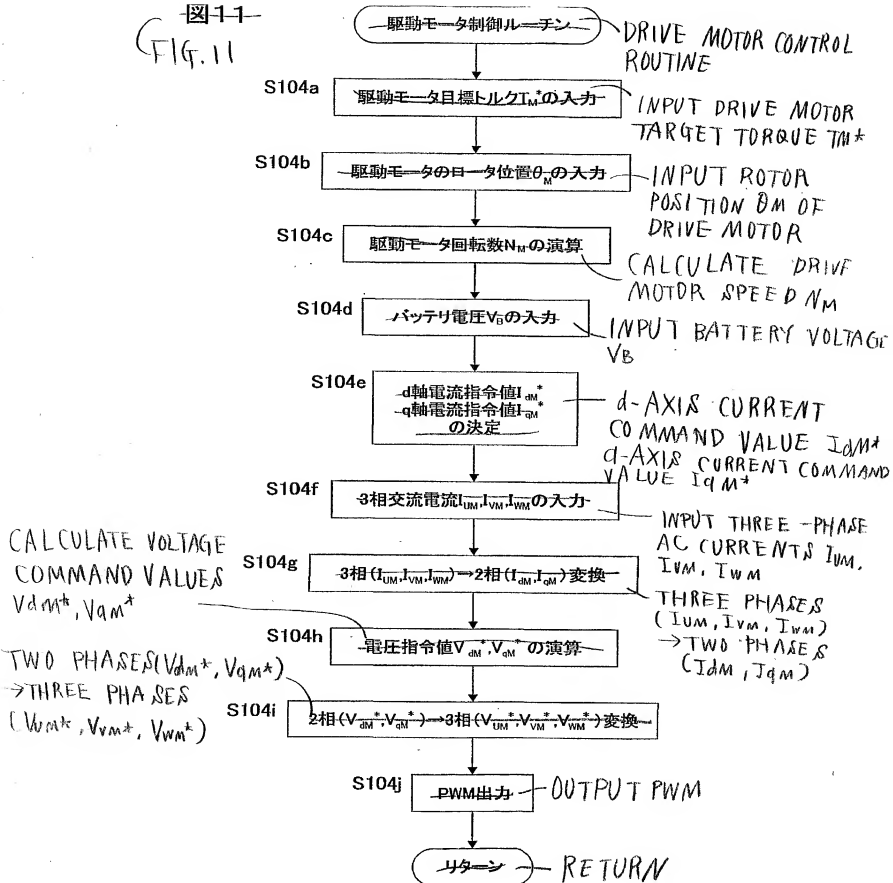 図11
FIG. 11
駆動モータ制御ルーチン
DRIVE MOTOR CONTROL
ROUTINE
S104a
駆動モータ目標トルクTM*の入力
INPUT DRIVE MOTOR
TARGET TORQUE TM*
S104b
駆動モータのロータ位置θMの入力
INPUT ROTOR
POSITION θM OF
DRIVE MOTOR
S104c
駆動モータ回転数NMの演算
CALCULATE DRIVE
MOTOR SPEED NM
S104d
バッテリ電圧VBの入力
INPUT BATTERY VOLTAGE
VB
S104e
d軸電流指令値IdM*
q軸電流指令値IqM*
の決定
d-AXIS CURRENT
COMMAND VALUE IdM*
d-AXIS CURRENT COMMAND
VALUE IqM*
S104f
3相交流電流IUM,IVM,IWMの入力
INPUT THREE-PHASE
AC CURRENTS IUM,
IVM, IWM
S104g
3相(IUM,IVM,IWM)→2相(IdM,IqM)変換
THREE PHASES
(IUM, IVM, IWM)
→TWO PHASES
(IdM, IqM)
CALCULATE VOLTAGE
COMMAND VALUES
VdM*, VqM*
S104h
電圧指令値VdM*,VqM*の演算
TWO PHASES(VdM*, VqM*)
→THREE PHASES
(VUM*, VVM*, VWM*)
S104i
2相(VdM*,VqM*)→3相(VUM*,VVM*,VWM*)変換
S104j
PWM出力
OUTPUT PWM
リターン
RETURN